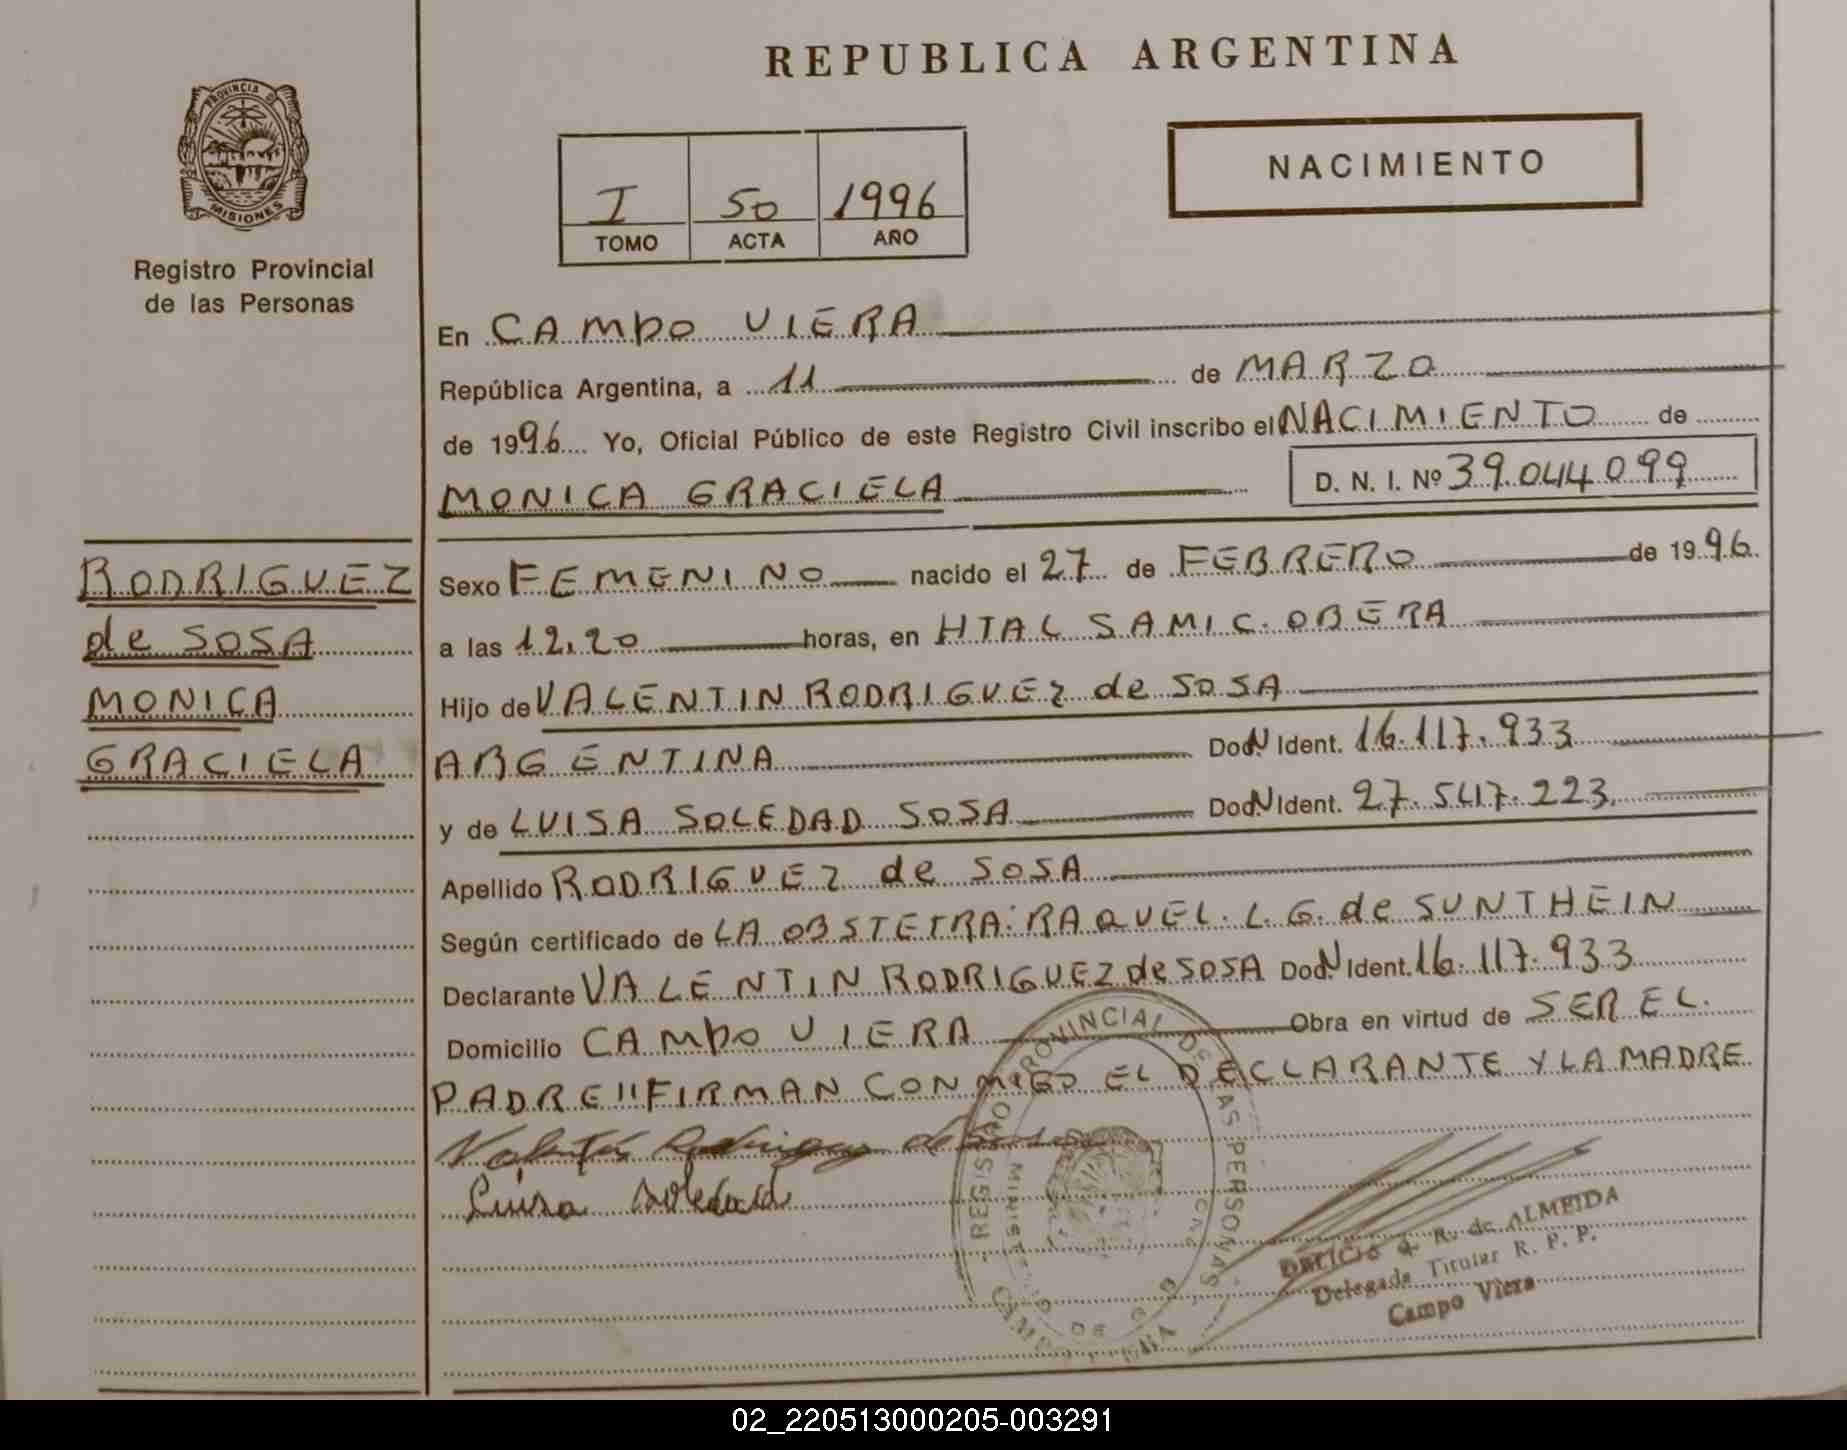 REPUBLICA ARGENTINA
PROVINCIA DE
MISIONES
Registro Provincial
de las Personas
I 50 1996
TOMO ACTA AÑO
NACIMIENTO
En CAMPO VIERA
República Argentina, a 11 de MARZO
de 1996 Yo, Oficial Público de este Registro Civil inscribo el NACIMIENTO de
MONICA GRACIELA D. N. I. Nº 39.044.099
RODRIGUEZ
de SOSA
MONICA
GRACIELA
Sexo FEMENINO nacido el 27 de FEBRERO de 1996.
a las 12.20 horas, en HTAL SAMIC. OBERA
Hijo de VALENTIN RODRIGUEZ de SOSA
ARGENTINA Doc. N Ident. 16.117.933
y de LUISA SOLEDAD SOSA Doc. N Ident. 27.547.223.
Apellido RODRIGUEZ de SOSA
Según certificado de LA OBSTETRA: RAQUEL. L. G. de SUNTHEIN
Declarante VALENTIN RODRIGUEZ de SOSA Doc. N Ident. 16.117.933
Domicilio CAMPO VIERA Obra en virtud de SER EL.
PADRE "FIRMAN CONMIGO EL DECLARANTE Y LA MADRE.
Valentín Rodriguez de Sosa
Luisa Soledad
REGISTRO PROVINCIAL DE LAS PERSONAS
R. de ALMEIDA
Delegada Titular R. P. P.
Campo Viera
02_220513000205-003291